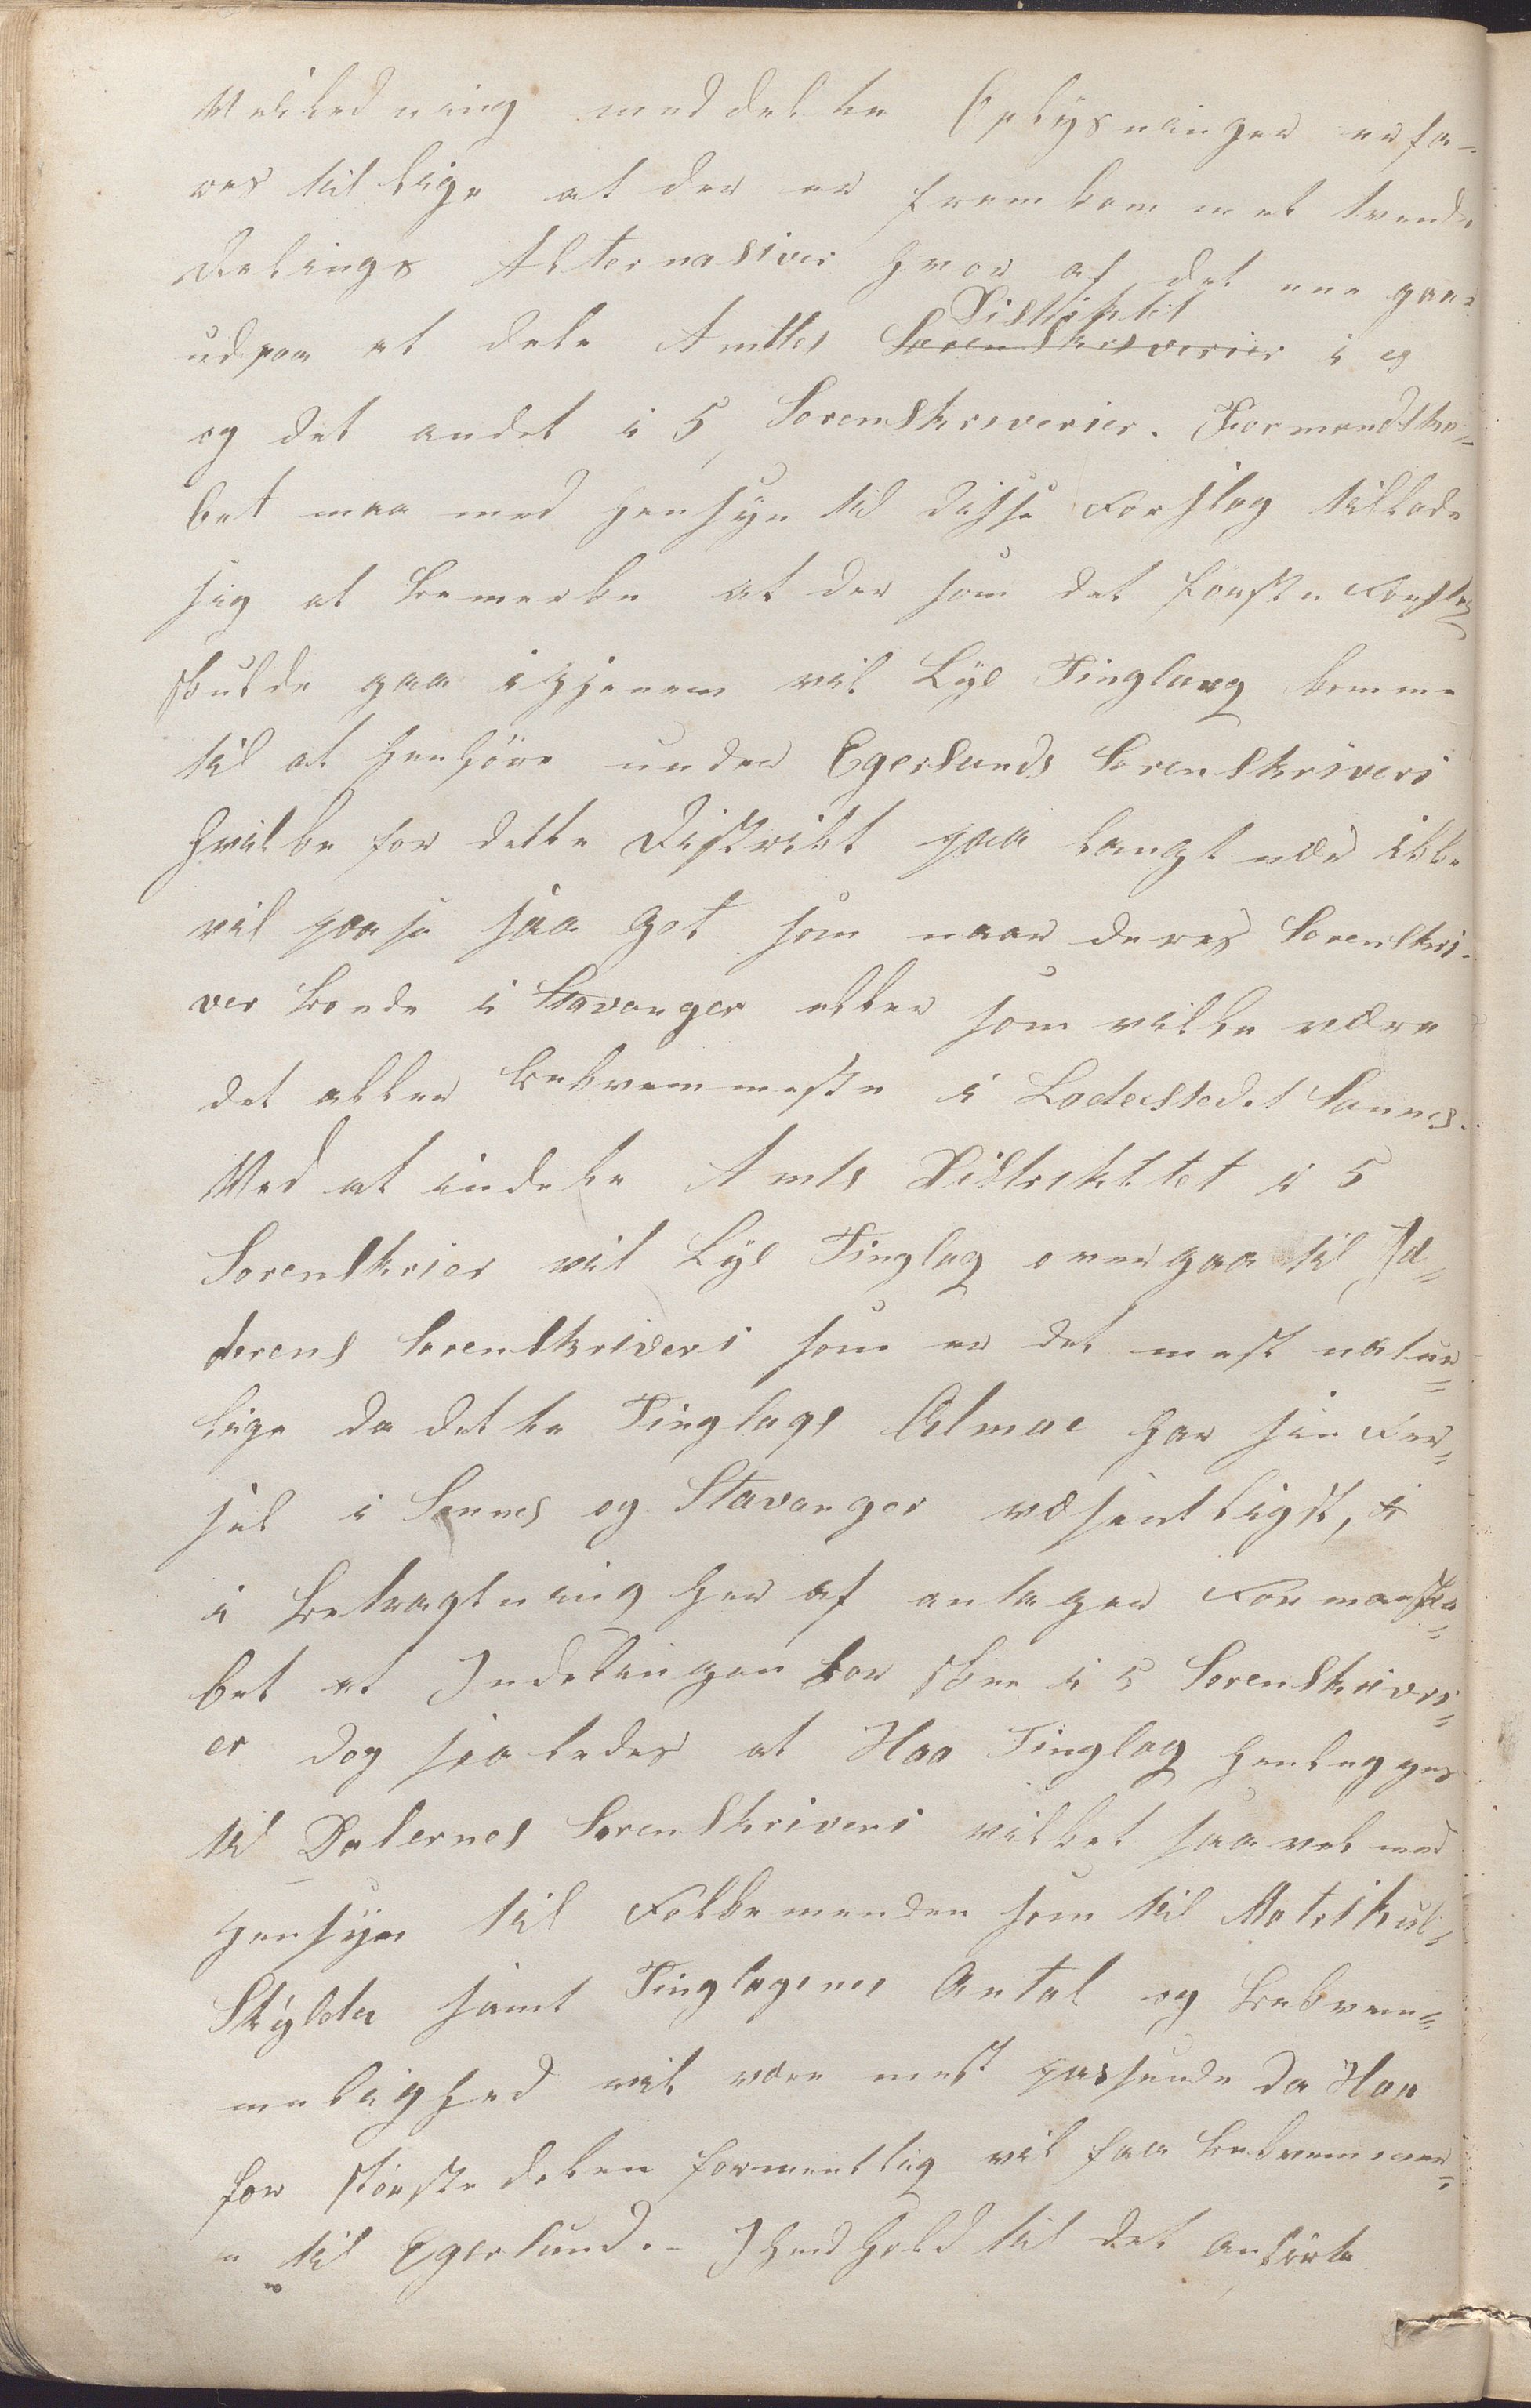 Veiledning meddelte Oplysninger erfa-
res tillige at der er fremkommet tvende
Delings Alternativer hvoraf det ene gaar
Distriktet
udpaa at dele Amtets Sorenskriverier i 4
og det andet i 5 Sorenskriverier. Formandska-
bet maa med Hensyn til disse Forslag tillade
sig at bemerke at der som det første Forslag
skulde gaa igjenem vil Lye Tinglaug komme
til at henhöre under Egersunds Sorenskriveri
hvilke for dette Distrikt paa langt nær ikke
vil passe saa got som naar deres Sorenskri-
ver boede i Stavanger eller som vilde være
det aller bekvemmeste i Ladestedet Sannes.
Ved at indele Amts Distriktet i 5
Sorenskrier vil Lye Tinglag overgaa til Jæ-
derens Sorenskriveri som er det mest natur-
lige da dette Tinglags Almue har sin Fær-
sel i Sannes og Stavanger væsentligst, i
i Betragtning her af antager Formanska-
bet at Indelingen bør skee i 5 Sorenskriveri-
er dog saaledes at Haa Tinglag henlegges
til Dalernes Sorenskriveri vilket saavel med
Hensyn til Folkemengden som til Matrikul-
Skylden samt Tinglagenes Antal og Bekvem-
melighed vil være mest passende da Haa
for størstedelen formentlig vil faa bekvemmer-
e til Egersund. - I Henhold til det anførte